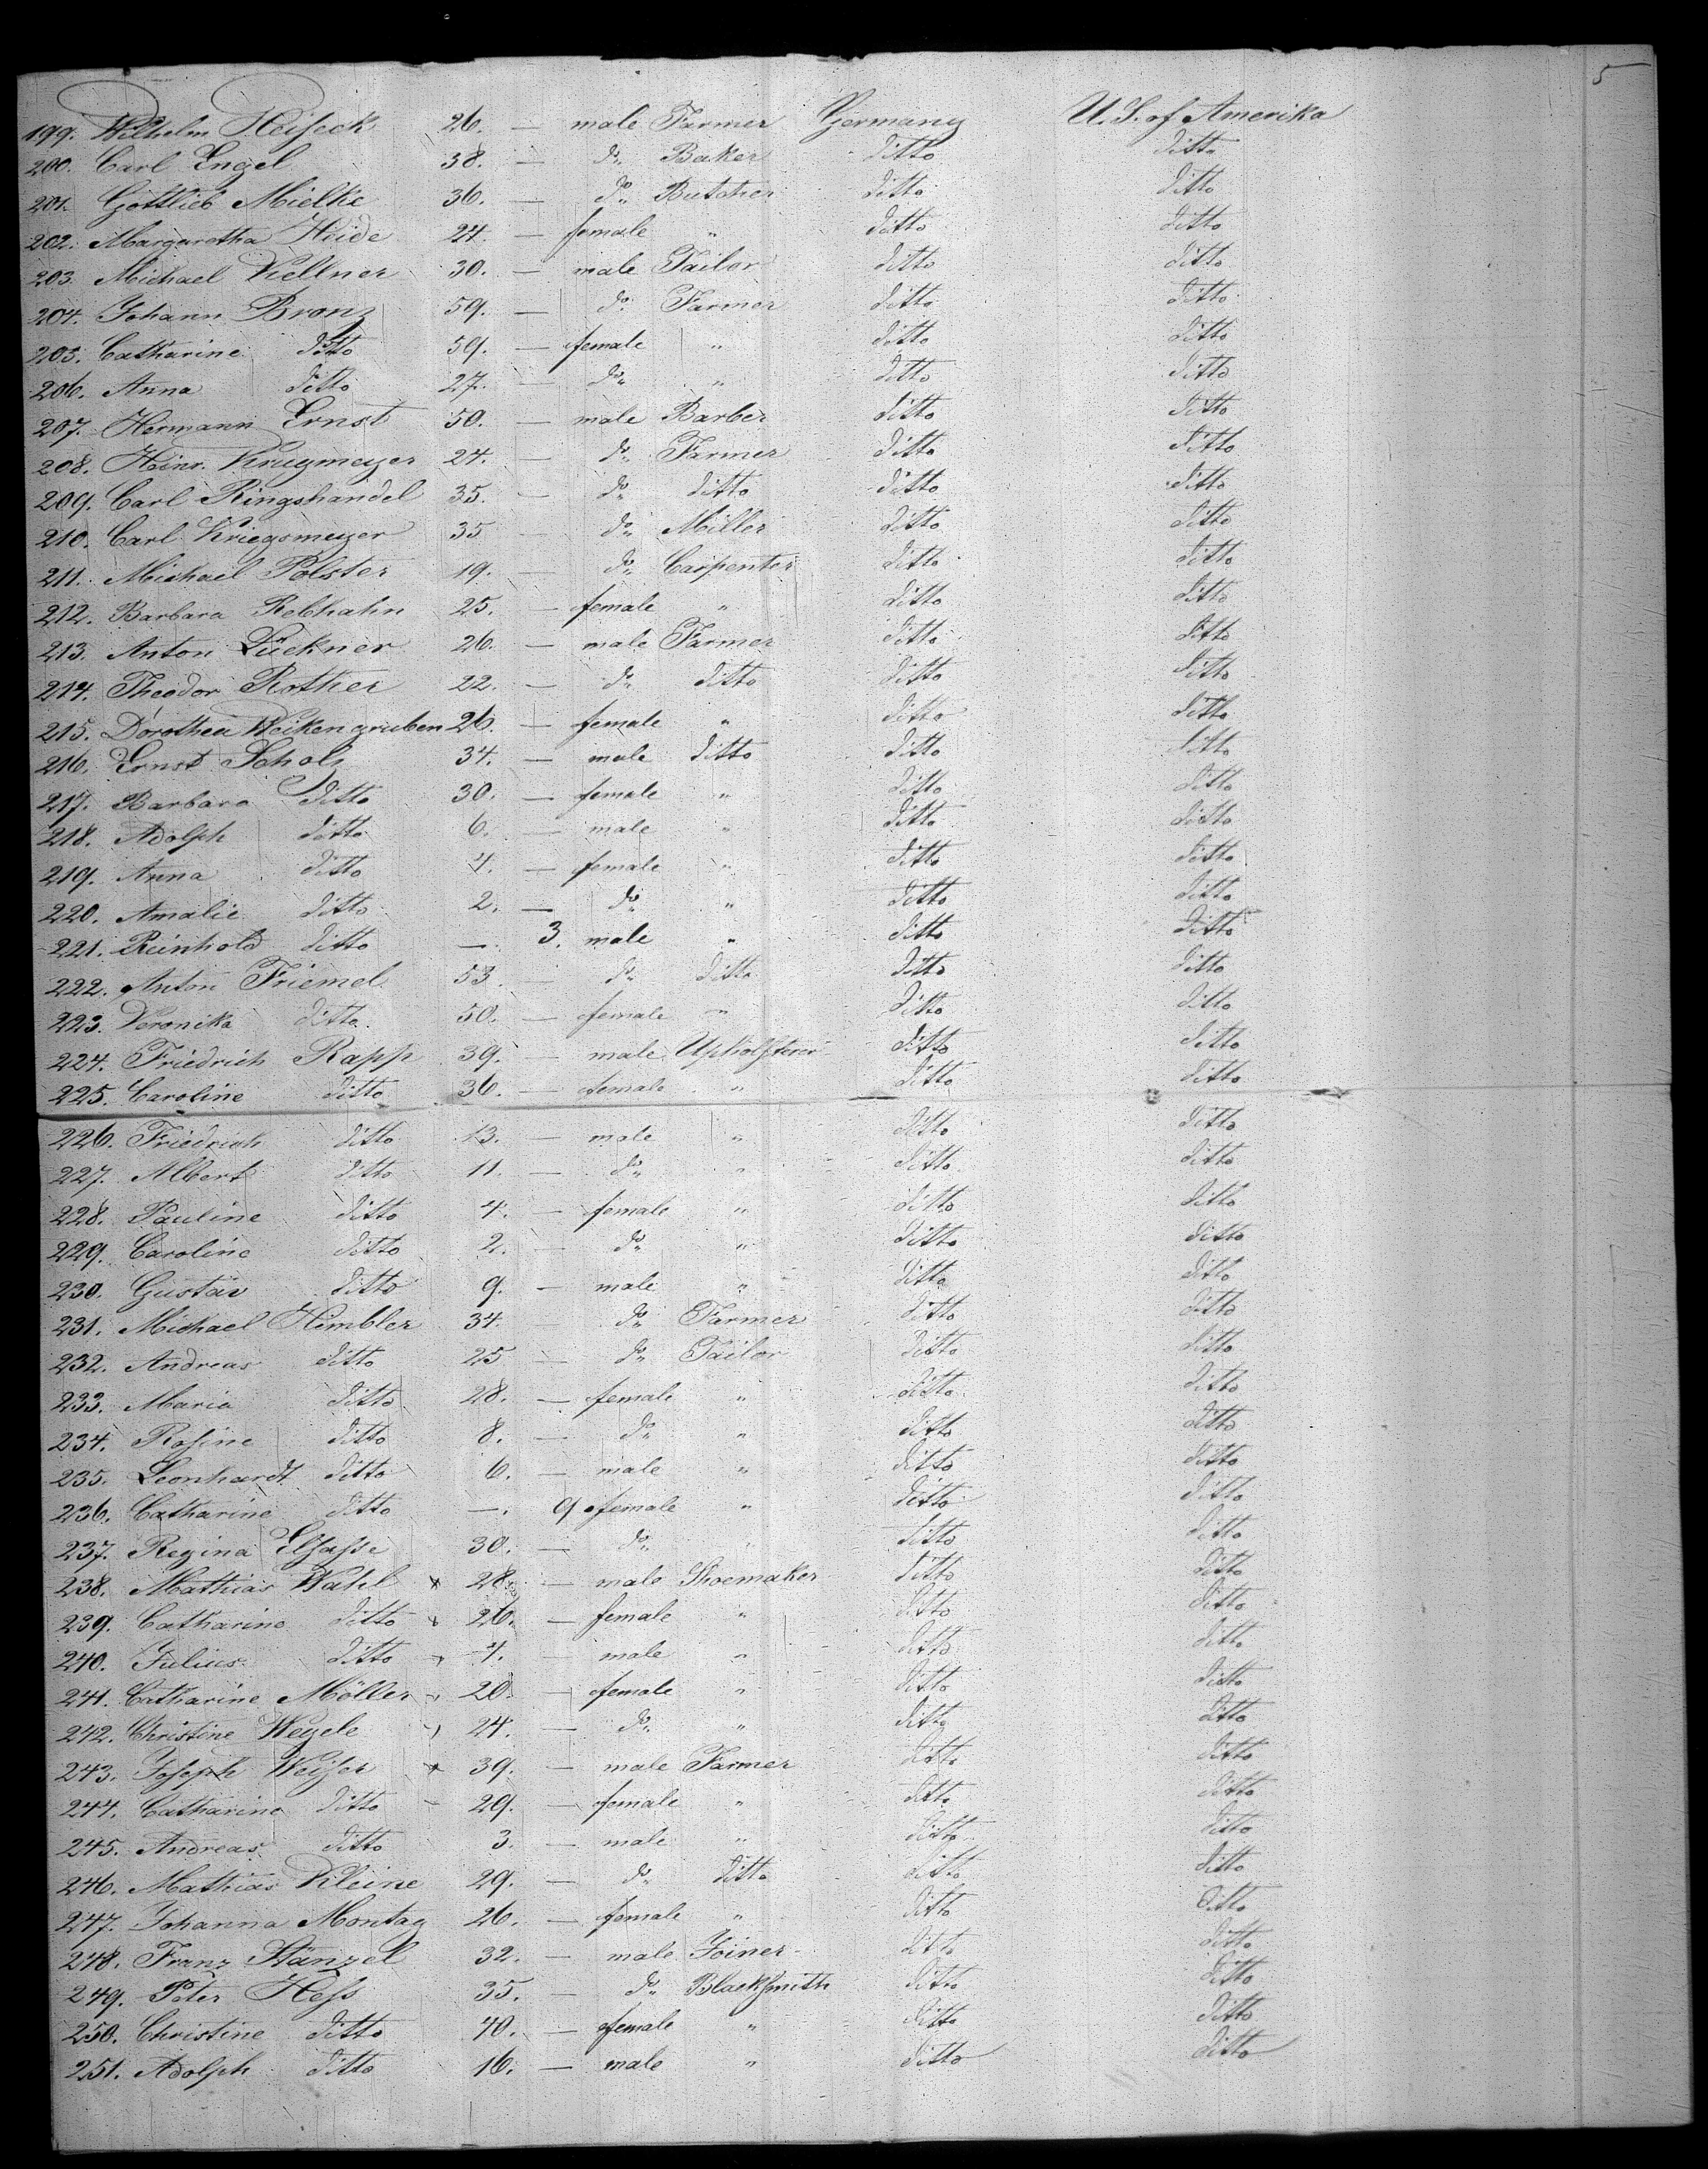 5
199. Wilhelm Heiseck 26. — male Farmer Germany U.S. of Amerika
200. Carl Engel 38. — do. Baker ditto ditto
201. Gottlieb Mielke 36. — do. Butcher ditto ditto
202. Margaretha Heide 24. — female " ditto ditto
203. Michael Kellner 30. — male Tailor ditto ditto
204. Johann Bronz 59. — do. Farmer ditto ditto
205. Catharine ditto 59. — female " ditto ditto
206. Anna ditto 27. — do. " ditto ditto
207. Hermann Ernst 50. — male Barber ditto ditto
208. Heinr. Krugmeyer 24. — do. Farmer ditto ditto
209. Carl Ringshandel 35. — do. ditto ditto ditto
210. Carl Kriegsmeyer 35 — do. Miller ditto ditto
211. Michael Polster 19. — do. Carpenter ditto ditto
212. Barbara Rebhahn 25. — female " ditto ditto
213. Anton Lückner 26. — male Farmer ditto ditto
214. Theodor Rother 22. — do. ditto ditto ditto
215. Dorothea Weikengruben 26. — female " ditto ditto
216. Ernst Scholz 34. — male ditto ditto ditto
217. Barbara ditto 30. — female " ditto ditto
218. Adolph ditto 6. — male " ditto ditto
219. Anna ditto 4. — female " ditto ditto
220. Amalie ditto 2. — do. " ditto ditto
221. Reinhold ditto —. 3. male " ditto ditto
222. Anton Friemel 53. — do. ditto ditto ditto
223. Veronika ditto 50. — female " ditto ditto
224. Friedrich Rapp 39. — male Upholsterer ditto ditto
225. Caroline ditto 36. — female " ditto ditto
226. Friedrich ditto 13. — male " ditto ditto
227. Albert ditto 11. — do. " ditto ditto
228. Pauline ditto 4. — female " ditto ditto
229. Caroline ditto 2. — do. " ditto ditto
230. Gustav ditto 9. — male " ditto ditto
231. Michael Himbler 34. — do. Farmer ditto ditto
232. Andreas ditto 25 — do. Tailor ditto ditto
233. Maria ditto 28. — female " ditto ditto
234. Rosine ditto 8. — do. " ditto ditto
235. Leonhardt ditto 6. — male " ditto ditto
236. Catharine ditto —. 9 female " ditto ditto
237. Regina Elsasse 30. — do. " ditto ditto
238. Mathias Wahl x 28. — male Shoemaker ditto ditto
239. Catharine ditto x 26. — female " ditto ditto
240. Julius ditto 4. — male " ditto ditto
241. Catharine Möller 20. — female " ditto ditto
242. Christine Weyele 24. — do. " ditto ditto
243. Joseph Weiser x 39. — male Farmer ditto ditto
244. Catharine ditto 29. — female " ditto ditto
245. Andreas ditto 3. — male " ditto ditto
246. Mathias Kleine 29. — do. ditto ditto ditto
247. Johanna Montag 26. — female " ditto ditto
248. Franz Hänzel 32. — male Joiner ditto ditto
249. Peter Hess 35. — do. Blacksmith ditto ditto
250. Christine ditto 40. — female " ditto ditto
251. Adolph ditto 16. — male " ditto ditto